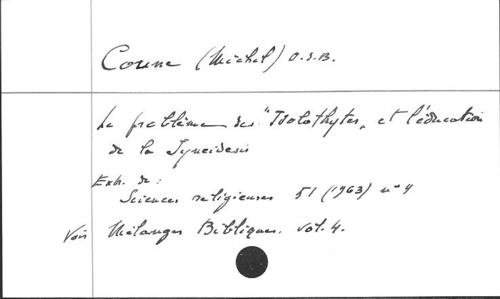 Coune (Michel) O.S.B.
Le problème des "Idolothytes" et l'éducation
de la Syneidesis
Extr. de :
Sciences religieuses 51 (1963) n° 4
Voir Mélanges Bibliques. vol. 4.